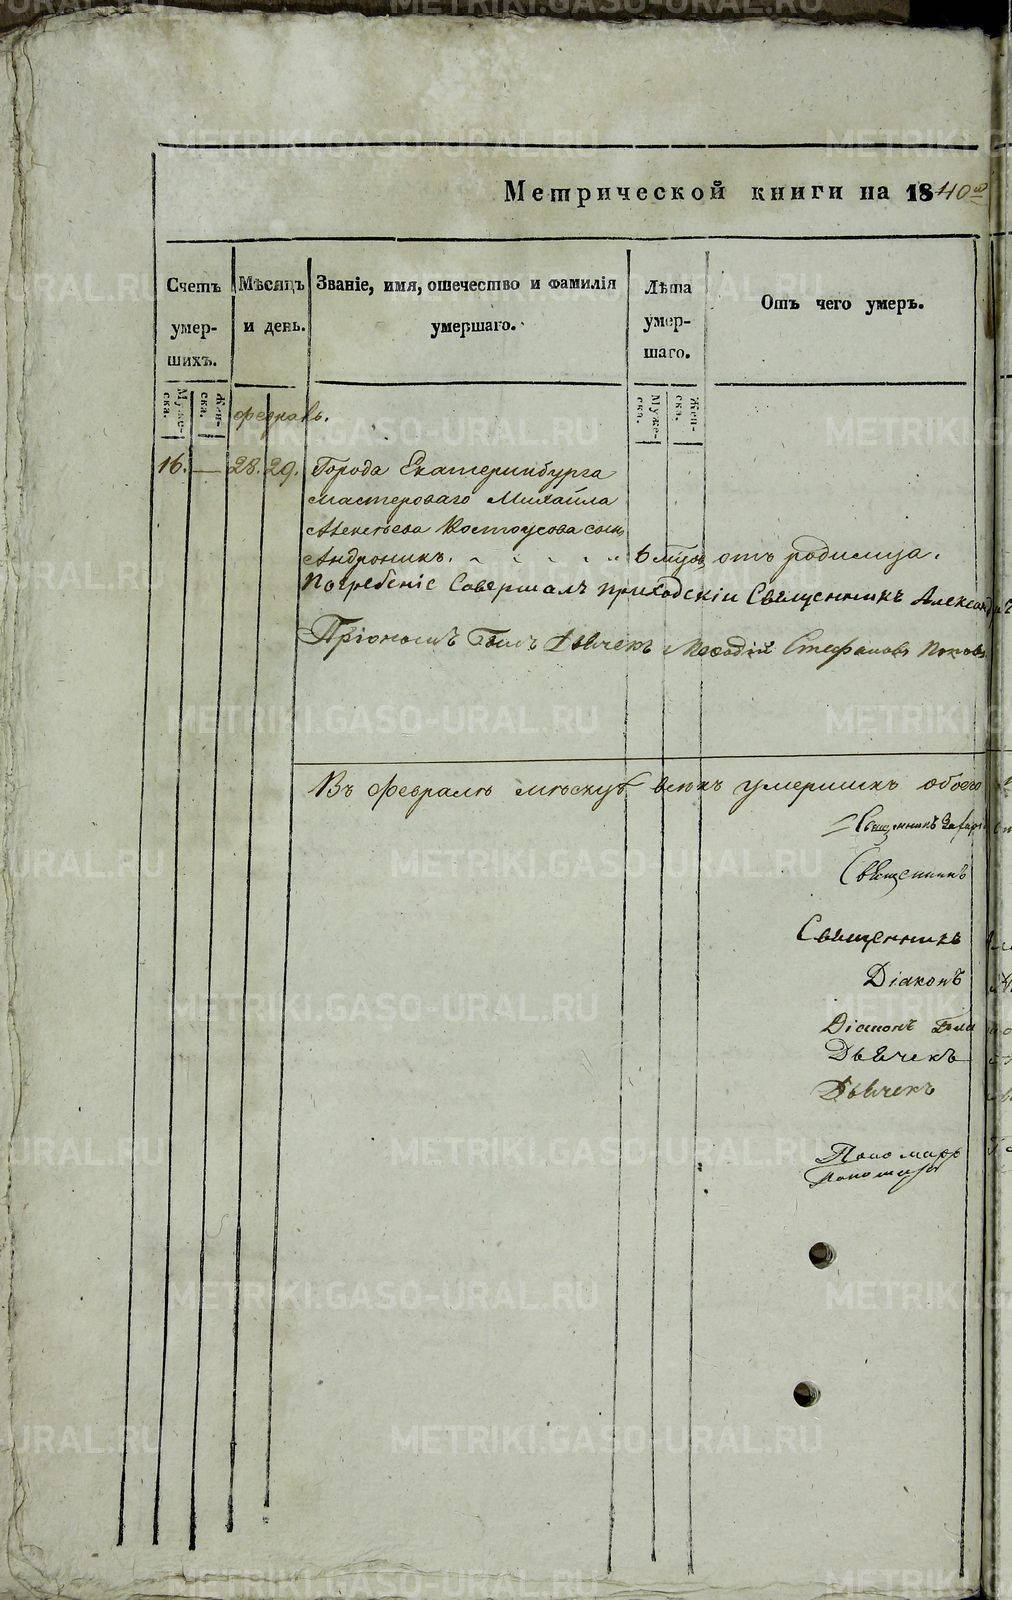 Метрической книги на 1840 го
Счетъ умер- шихъ.
Мѣсяцъ и день.
Званіе, имя, отечество и фамилія умершаго.
Лѣта умер- шаго.
Отъ чего умеръ.
Муже- ска. Жен- ска.
Муже- ска. Жен- ска.
февраль.
16. — 28. 29. Города Екатеринбурга
мастероваго Михайла
Алексѣева Костоусова сынъ
Андроникъ. 6 мѣсъ отъ родимца.
Погребеніе Совершалъ приходскіи Священникъ Александръ
При ономъ былъ Дьячекъ Меѳодій Стефановъ Поповъ
Въ февралѣ мѣсяцѣ всѣхъ умершихъ обоего
Священникъ Захарі
Священникъ
Священникъ
Діаконъ
Діаконъ
Дьячекъ
Дьячекъ
Пономарь
Пономарь
METRIKI.GASO-URAL.RU